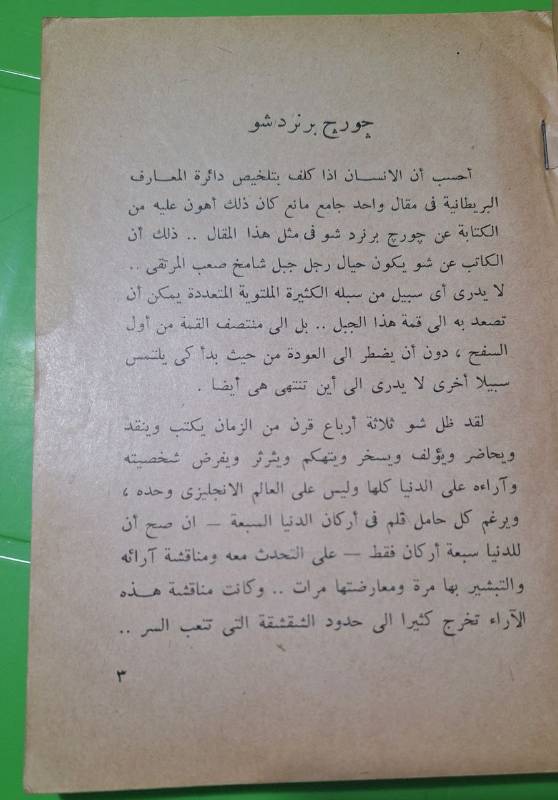 چورچ برنرد شو
أحسب أن الانسان اذا كلف بتلخيص دائرة المعارف
البريطانية فى مقال واحد جامع مانع كان ذلك أهون عليه من
الكتابة عن چورچ برنرد شو فى مثل هذا المقال .. ذلك أن
الكاتب عن شو يكون حيال رجل جبل شامخ صعب المرتقى ..
لا يدرى أى سبيل من سبله الكثيرة الملتوية المتعددة يمكن أن
تصعد به الى قمة هذا الجبل .. بل الى منتصف القمة من أول
السفح ، دون أن يضطر الى العودة من حيث بدأ كى يلتمس
سبيلا أخرى لا يدرى الى أين تنتهى هى أيضا .
لقد ظل شو ثلاثة أرباع قرن من الزمان يكتب وينقد
ويحاضر ويؤلف ويسخر ويتهكم ويثرثر ويفرض شخصيته
وآراءه على الدنيا كلها وليس على العالم الانجليزى وحده ،
ويرغم كل حامل قلم فى أركان الدنيا السبعة – ان صح أن
للدنيا سبعة أركان فقط – على التحدث معه ومناقشة آرائه
والتبشير بها مرة ومعارضتها مرات .. وكانت مناقشة هذه
الآراء تخرج كثيرا الى حدود الشقشقة التى تتعب السر ..
٣